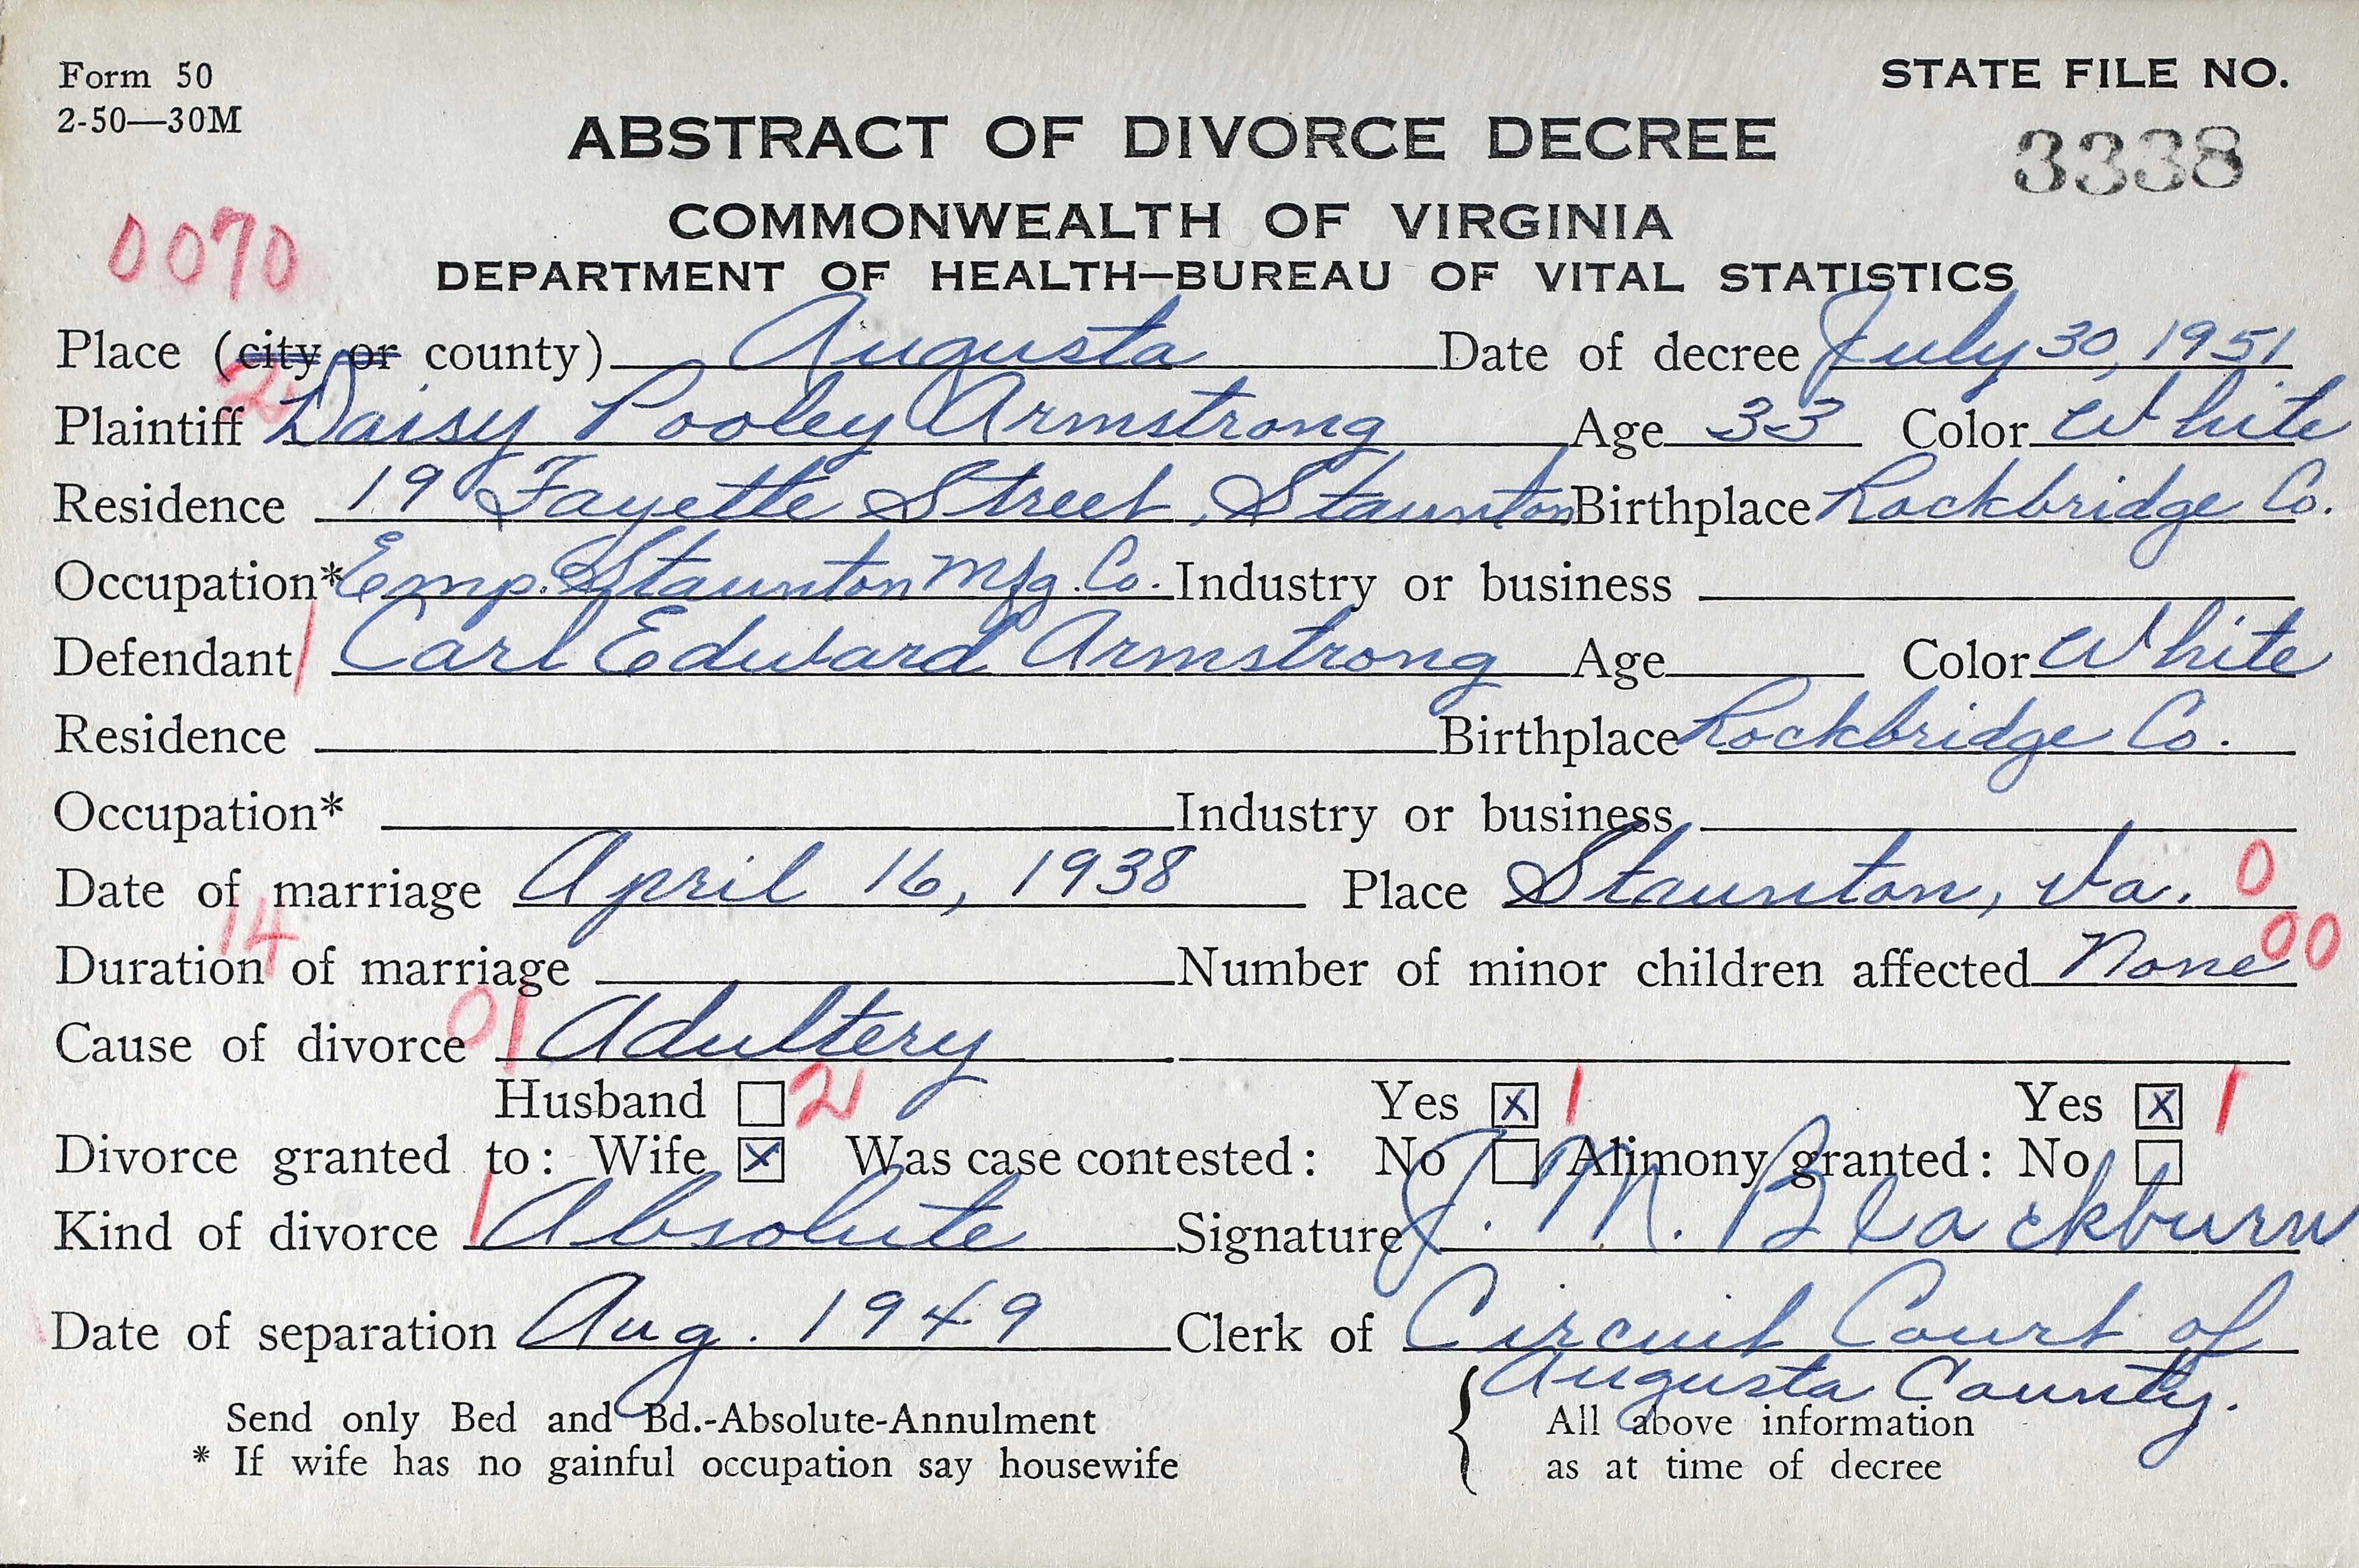 Form 50
2-50—30M
STATE FILE NO.
3338
ABSTRACT OF DIVORCE DECREE
COMMONWEALTH OF VIRGINIA
0070
DEPARTMENT OF HEALTH—BUREAU OF VITAL STATISTICS
Place (city or county) Augusta Date of decree July 30, 1951
2
Plaintiff Daisy Pooley Armstrong Age 33 Color White
Residence 19 Fayette Street, Staunton Birthplace Rockbridge Co.
Occupation* Emp. Staunton Mfg. Co. Industry or business
Defendant 1 Carl Edward Armstrong Age Color White
Residence Birthplace Rockbridge Co.
Occupation* Industry or business
Date of marriage April 16, 1938 Place Staunton, Va. 0
14
Duration of marriage Number of minor children affected None 00
Cause of divorce 01 Adultery
Husband 2 Yes x 1 Yes x 1
Divorce granted to: Wife x Was case contested: No Alimony granted: No
Kind of divorce 1 Absolute Signature J. M. Blackburn
Date of separation Aug. 1949 Clerk of Circuit Court of
Augusta County.
Send only Bed and Bd.-Absolute-Annulment
* If wife has no gainful occupation say housewife
All above information
as at time of decree